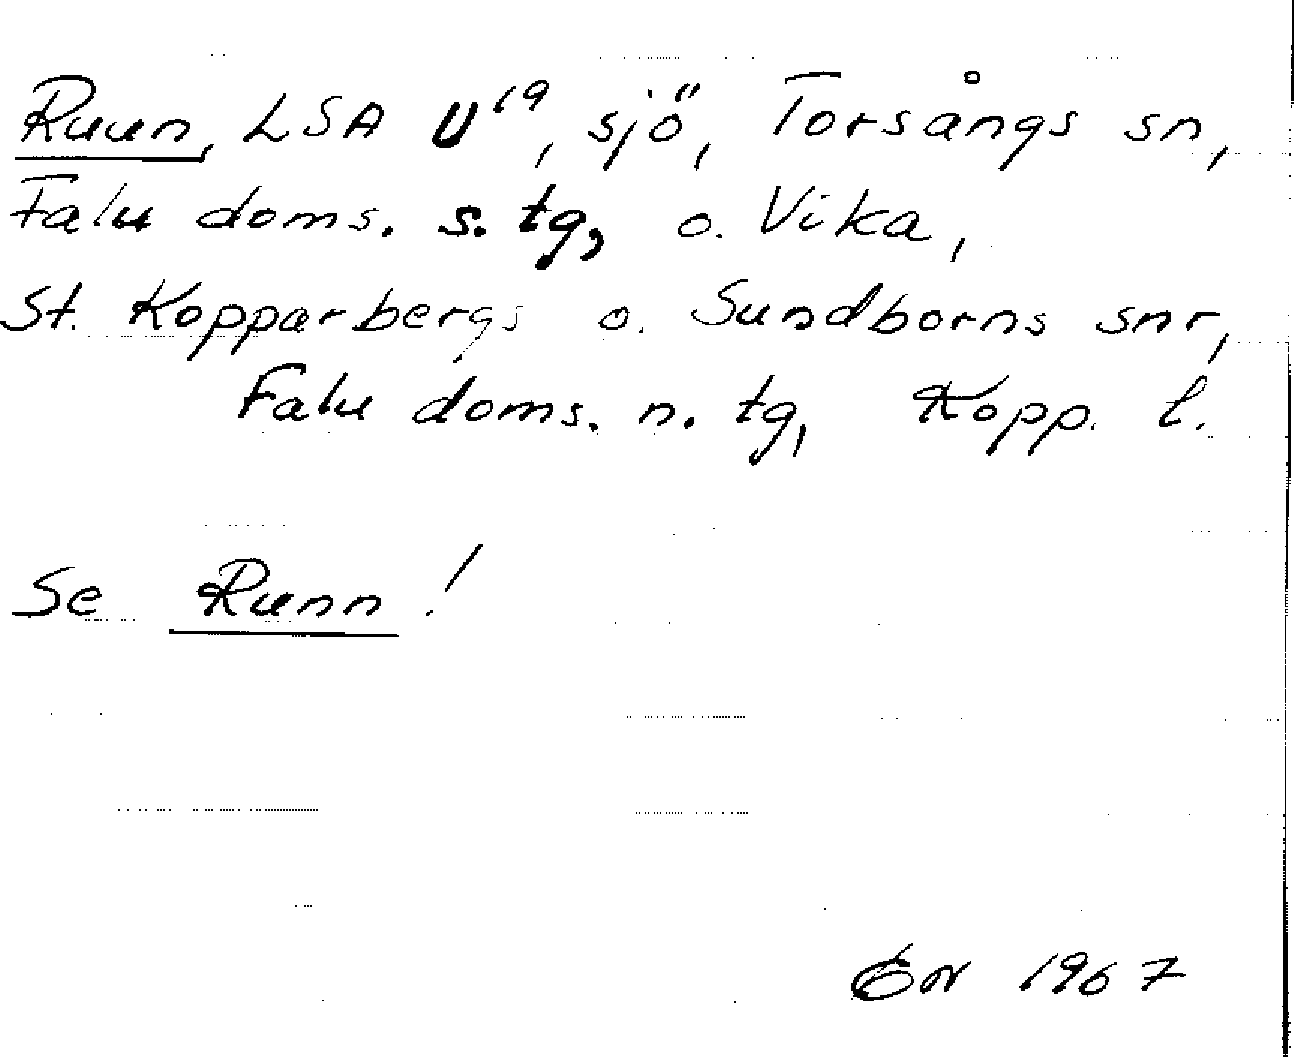 Ruun, LSA U¹⁹, sjö, Torsångs sn,
Falu doms. s. tg, o. Vika,
St. Kopparbergs o. Sundborns snr,
Falu doms. n. tg, Kopp. l.
Se Runn!
1967